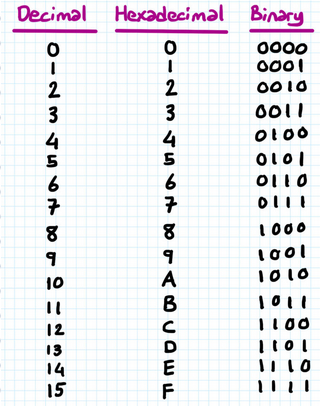 Decimal Hexadecimal Binary
0 0 0000
1 1 0001
2 2 0010
3 3 0011
4 4 0100
5 5 0101
6 6 0110
7 7 0111
8 8 1000
9 9 1001
10 A 1010
11 B 1011
12 C 1100
13 D 1101
14 E 1110
15 F 1111